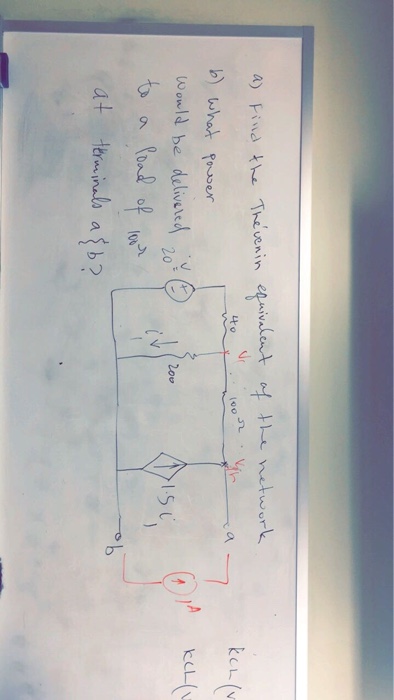 a) Find the Thévenin equivalent of the network
b) what power
would be delivered
to a load of 100Ω
at terminals a & b?
20
40
V1
200
i1
100Ω
1.5i1
a
b
1A
KCL(V
KCL(V